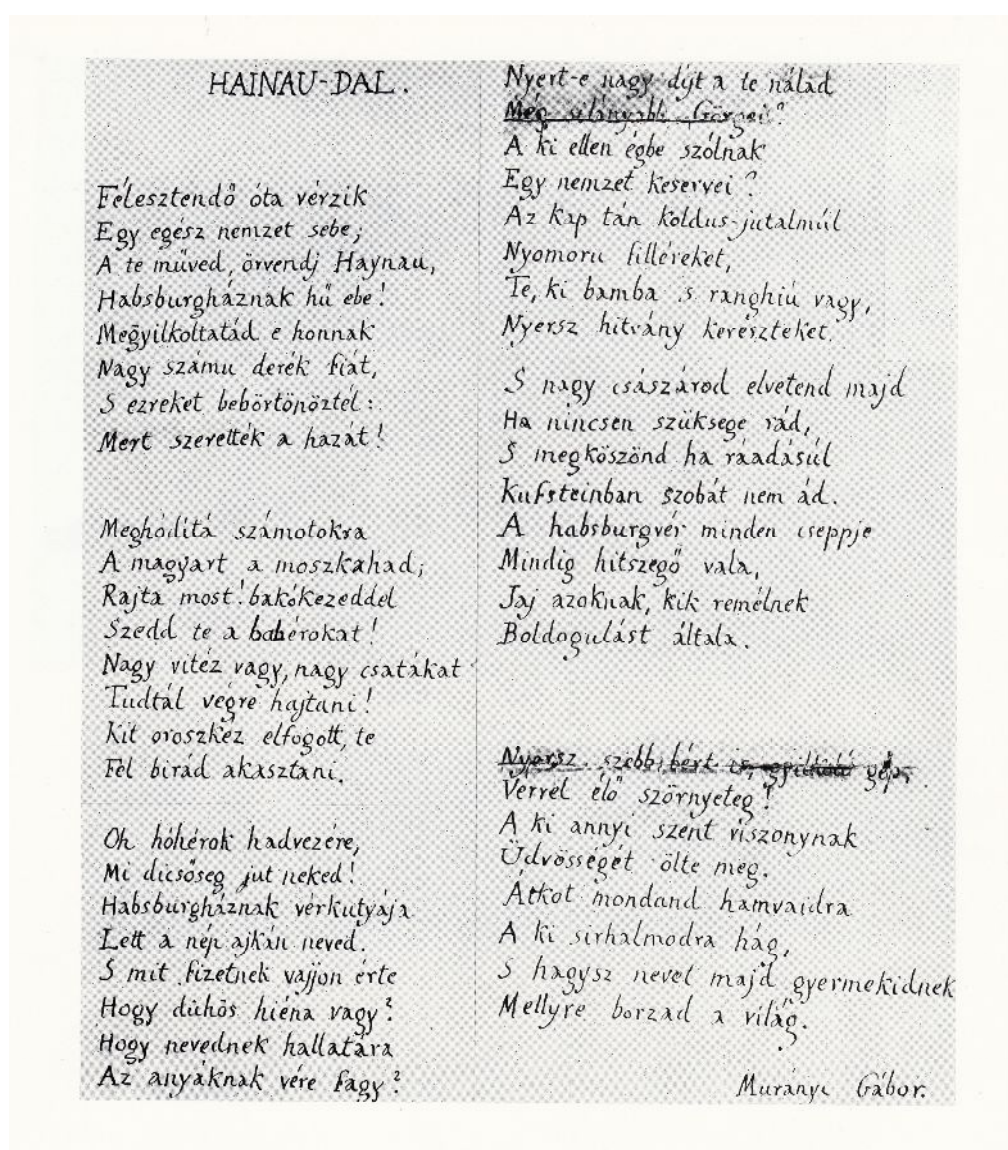 HAINAU-DAL.
Félesztendő óta vérzik
Egy egész nemzet sebe;
A te műved, örvendj Haynau,
Habsburgháznak hű ebe!
Megyilkoltatád e honnak
Nagy számu derék fiát,
S ezreket bebörtönöztél:
Mert szerették a hazát!
Meghódítá számotokra
A magyart a moszkahad;
Rajta most! bakókezeddel
Szedd te a babérokat!
Nagy vitéz vagy, nagy csatákat
Tudtál végre hajtani!
Kit oroszkéz elfogott, te
Fel birád akasztani.
Oh hóhérok hadvezére,
Mi dicsőség jut neked!
Habsburgháznak vérkutyája
Lett a nép ajkán neved.
S mit fizetnek vajjon érte
Hogy dühös hiéna vagy?
Hogy nevednek hallatára
Az anyáknak vére fagy?
Nyert-e nagy díjt a te nálad
Még silányabb Görgei?
A ki ellen égbe szólnak
Egy nemzet keservei?
Az kap tán koldus-jutalmúl
Nyomoru filléreket,
Te, ki bamba s ranghiú vagy,
Nyersz hitvány kereszteket.
S nagy császárod elvetend majd
Ha nincsen szüksege rád,
S megköszönd ha ráadásúl
Kufsteinban szobát nem ád.
A habsburgvér minden cseppje
Mindig hitszegő vala,
Jaj azoknak, kik remélnek
Boldogulást általa.
Nyersz szebb bért is, gyilkoló gép,
Vérrel élő szörnyeteg!
A ki annyi szent viszonynak
Üdvösségét ölte meg.
Átkot mondand hamvaidra
A ki sirhalmodra hág,
S hagysz nevet majd gyermekidnek
Mellyre borzad a világ.
Murányi Gábor.